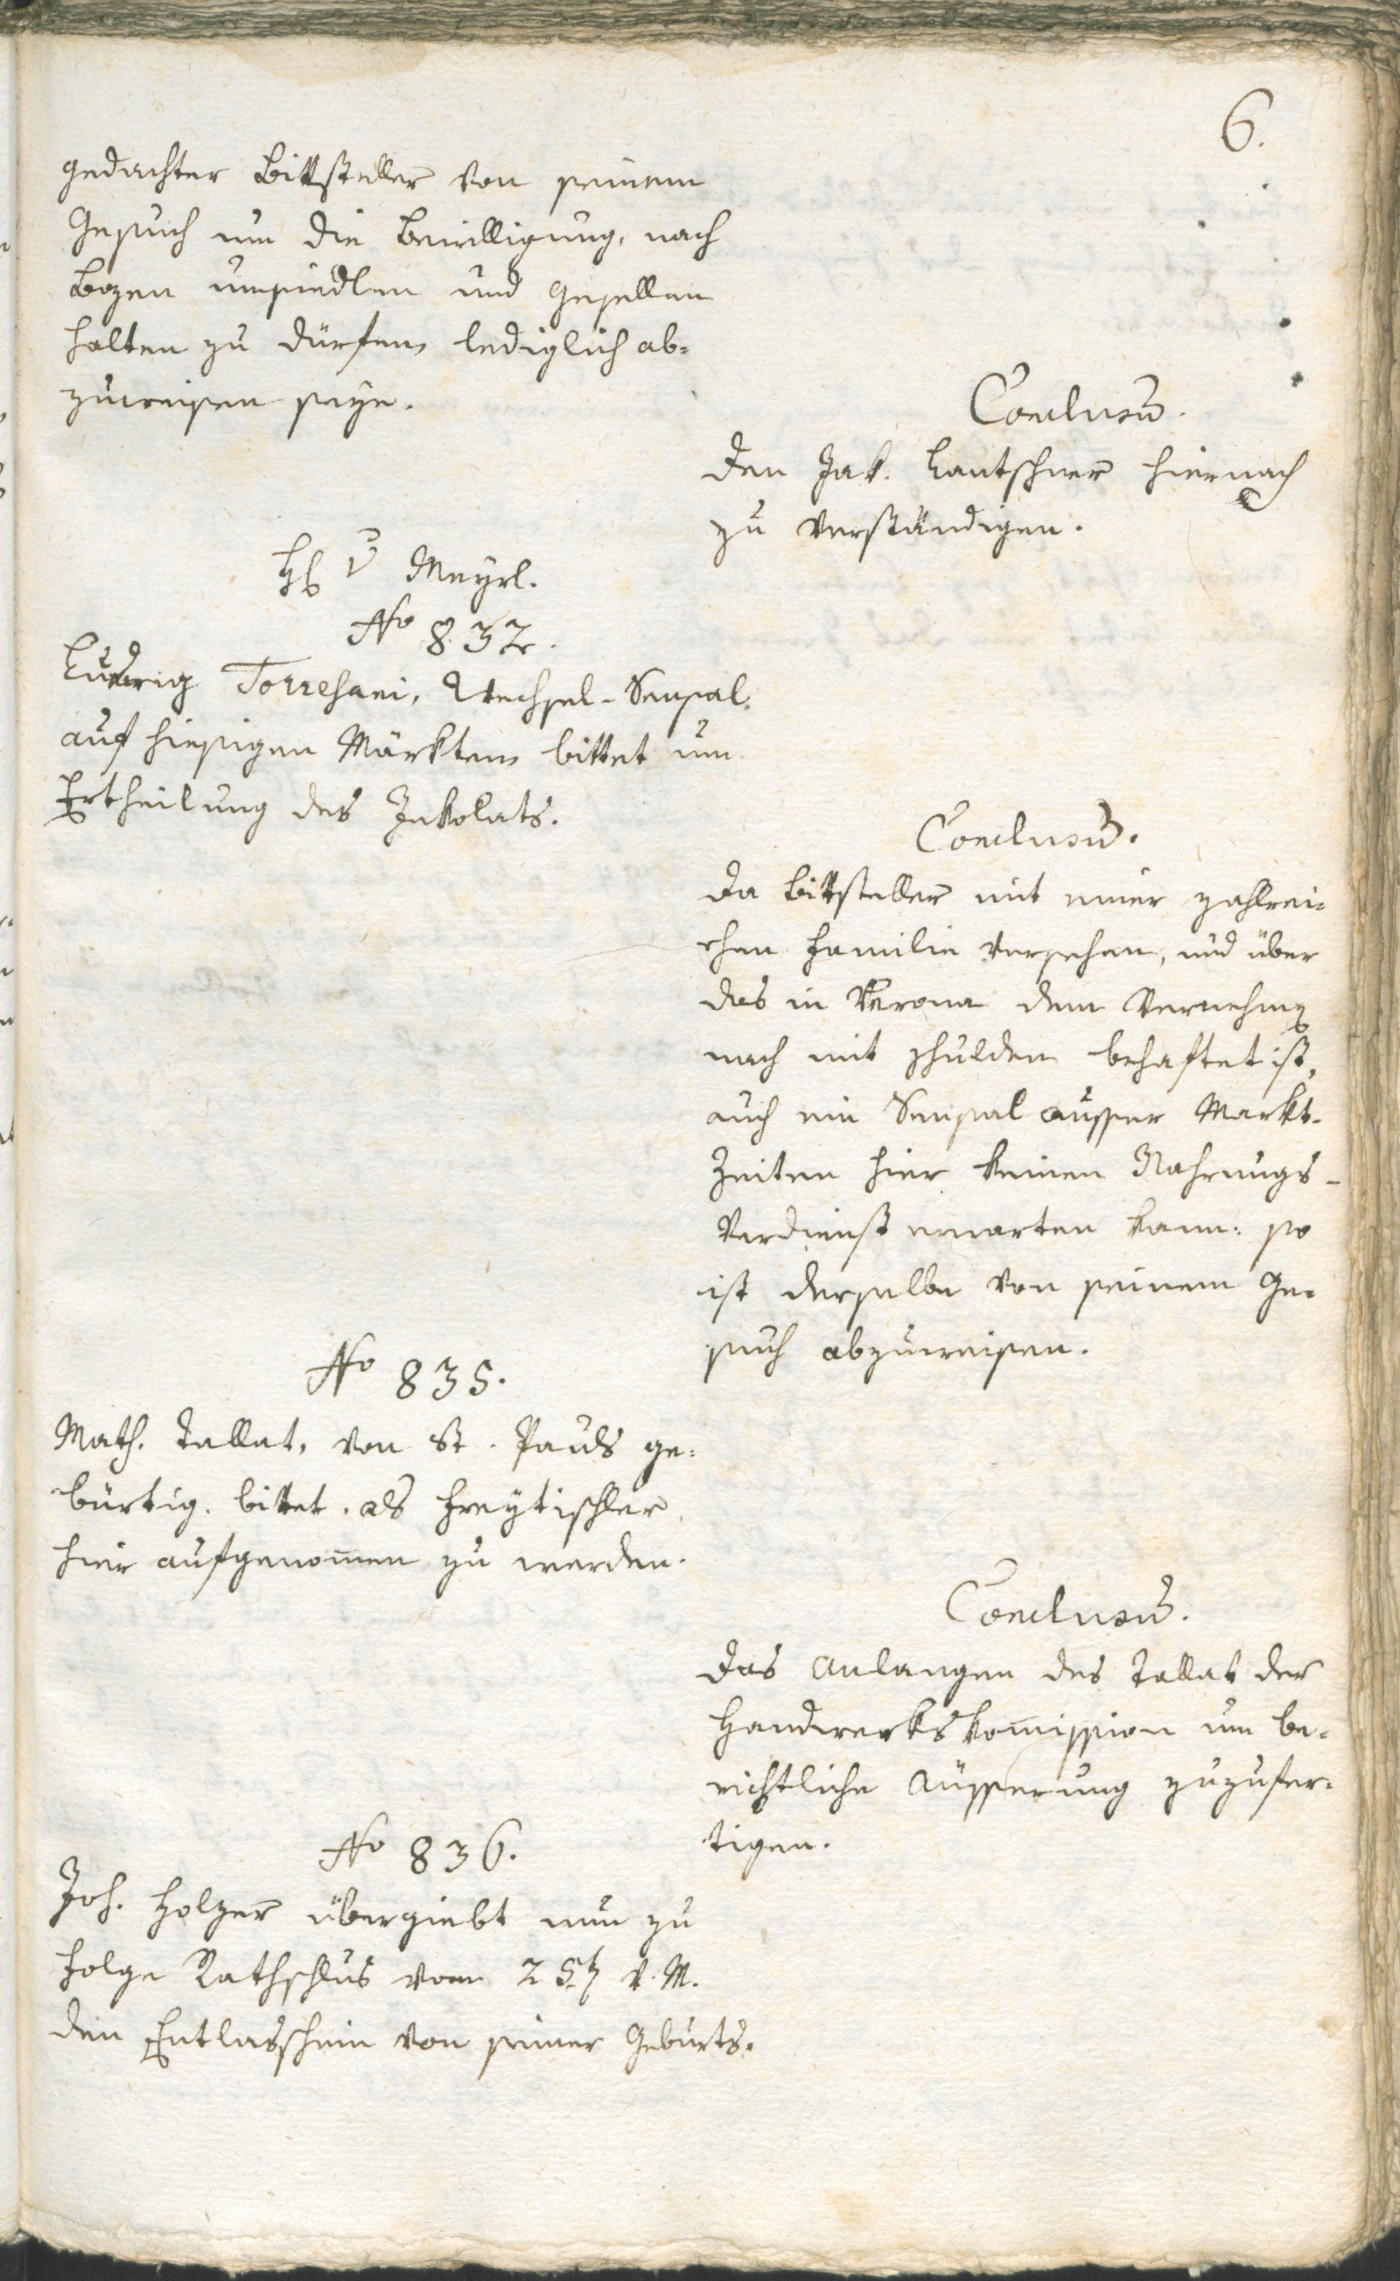 6.
gedachter Bittsteller von seinem
Gesuch um die Bewilligung, nach
Bozen umsiedlen und Gesellen
halten zu dürfen, lediglich ab-
zuweisen seÿe.
Conclusum.
den Jak. Lantschner hiernach
zu verständigen.
H v Meyrl.
No 832.
Ludwig Torresani, Wechsel-Sensal
auf hiesigen Märkten, bittet um
Ertheilung des Inkolats.
Conclusum.
Da Bittsteller mit einer zahlrei-
chen Familie versehen, und über
das in Verona dem Vernehmen
nach mit Schulden behaftet ist,
auch ein Sensal ausser Markt-
Zeiten hier keinen Nahrungs-
Verdienst erwarten kann: so
ist derselbe von seinem Ge-
such abzuweisen.
No 835.
Math. Tallat, von St. Pauls ge-
bürtig, bittet, als Freytischler
hier aufgenom̅en zu werden.
Conclusum.
Das Anlangen des Tallat der
Handwerkskom̅ission um be-
richtliche Äusserung zuzufer-
tigen.
No 836.
Joh. Holzer übergiebt nun zu
Folge Rathschlus vom 25t v. M.
den Entlasschein von seiner Geburts-